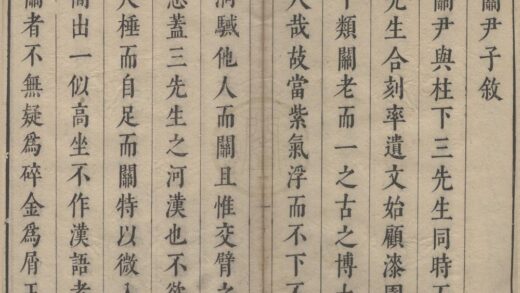 關尹子敘
關尹與柱下三先生同時
先生合刻率遺文始顧漆園
類關老而一之古之博大
人哉故當紫氣浮而不下
他人而關且惟交臂之
蓋三先生之河漢也不欲
人棰而自足而關特以微
出一似高坐不作漢語者
關者不無疑爲碎金爲屑玉